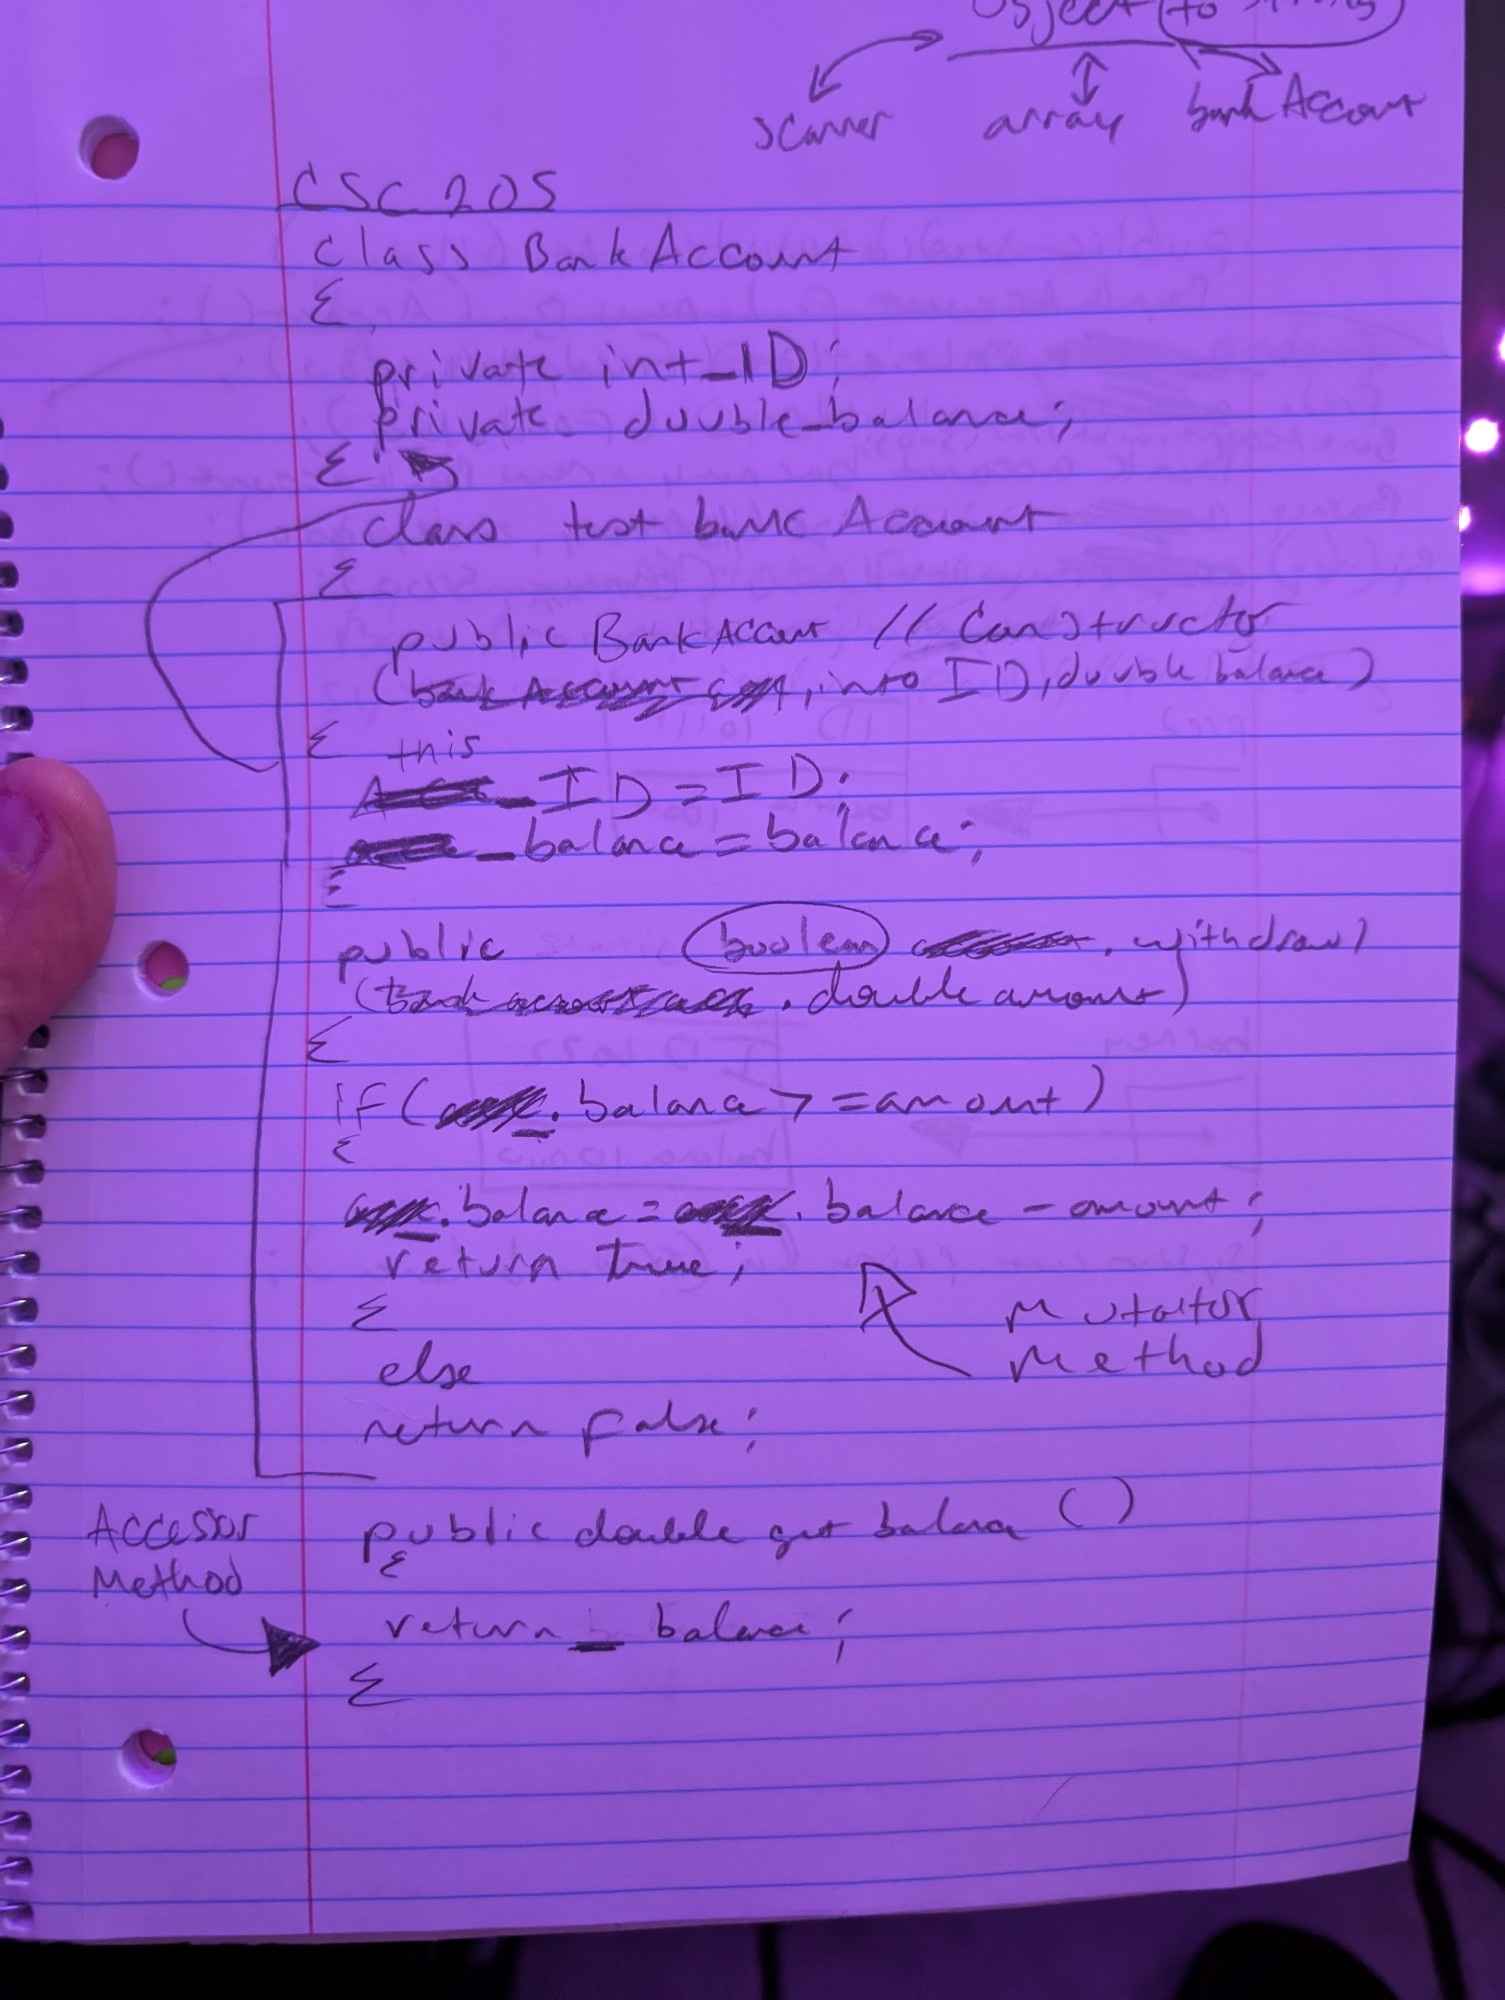 Object (to string)
scanner array bank Account
CSC 205
class Bank Account
{
private int _ID;
private double _balance;
{
class test bank Account
{
public Bank Account // Constructor
(bank Account, into ID, double balance)
{ this
_ID = ID;
_balance = balance;
{
public boolean . withdraw)
(bank account . double amount)
{
if ( . balance >= amount)
{
. balance = . balance - amount;
return true;
{
Mutator
Method
else
return false;
Accessor
Method
public double get balance ()
{
return _ balance;
{